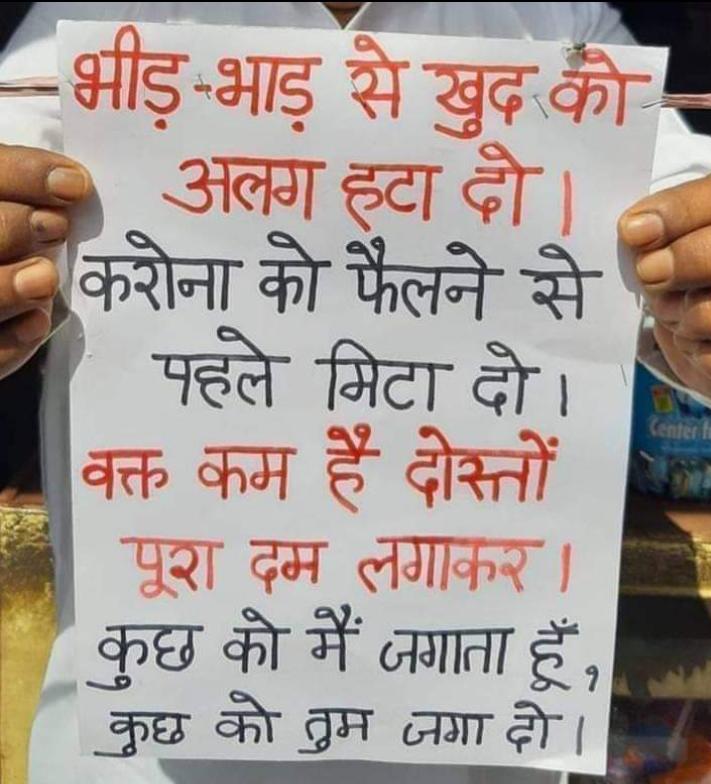 भीड़-भाड़ से खुद को
अलग हटा दो।
करोना को फैलने से
पहले मिटा दो।
वक्त कम है दोस्तों
पूरा दम लगाकर।
कुछ को मैं जगाता हूँ,
कुछ को तुम जगा दो।
Center